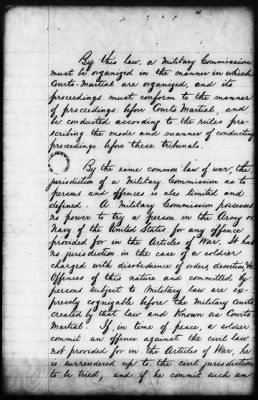 By this law, a Military Commission
must be organized in the manner in which
Courts-Martial are organized, and its
proceedings must conform to the manner
of proceedings before Courts Martial, and
be conducted according to the rules pre-
scribing the mode and manner of conducting
proceedings before these tribunals.
By the same common law of war, the
jurisdiction of a Military Commission as to
persons and offences is also limited and
defined. A Military Commission possesses
no power to try a person in the Army or
Navy of the United States for any offence
provided for in the Articles of War. It has
no jurisdiction in the case of a soldier
charged with disobedience of orders, desertion, &c
Offences of this nature and committed by
persons subject to Military law are ex-
pressly cognizable before the Military Courts
created by that law and known as Courts-
Martial. If, in time of peace, a soldier
commit an offence against the civil law
not provided for in the Articles of War, he
is surrendered up to the civil jurisdiction
to be tried, and if he commit such an